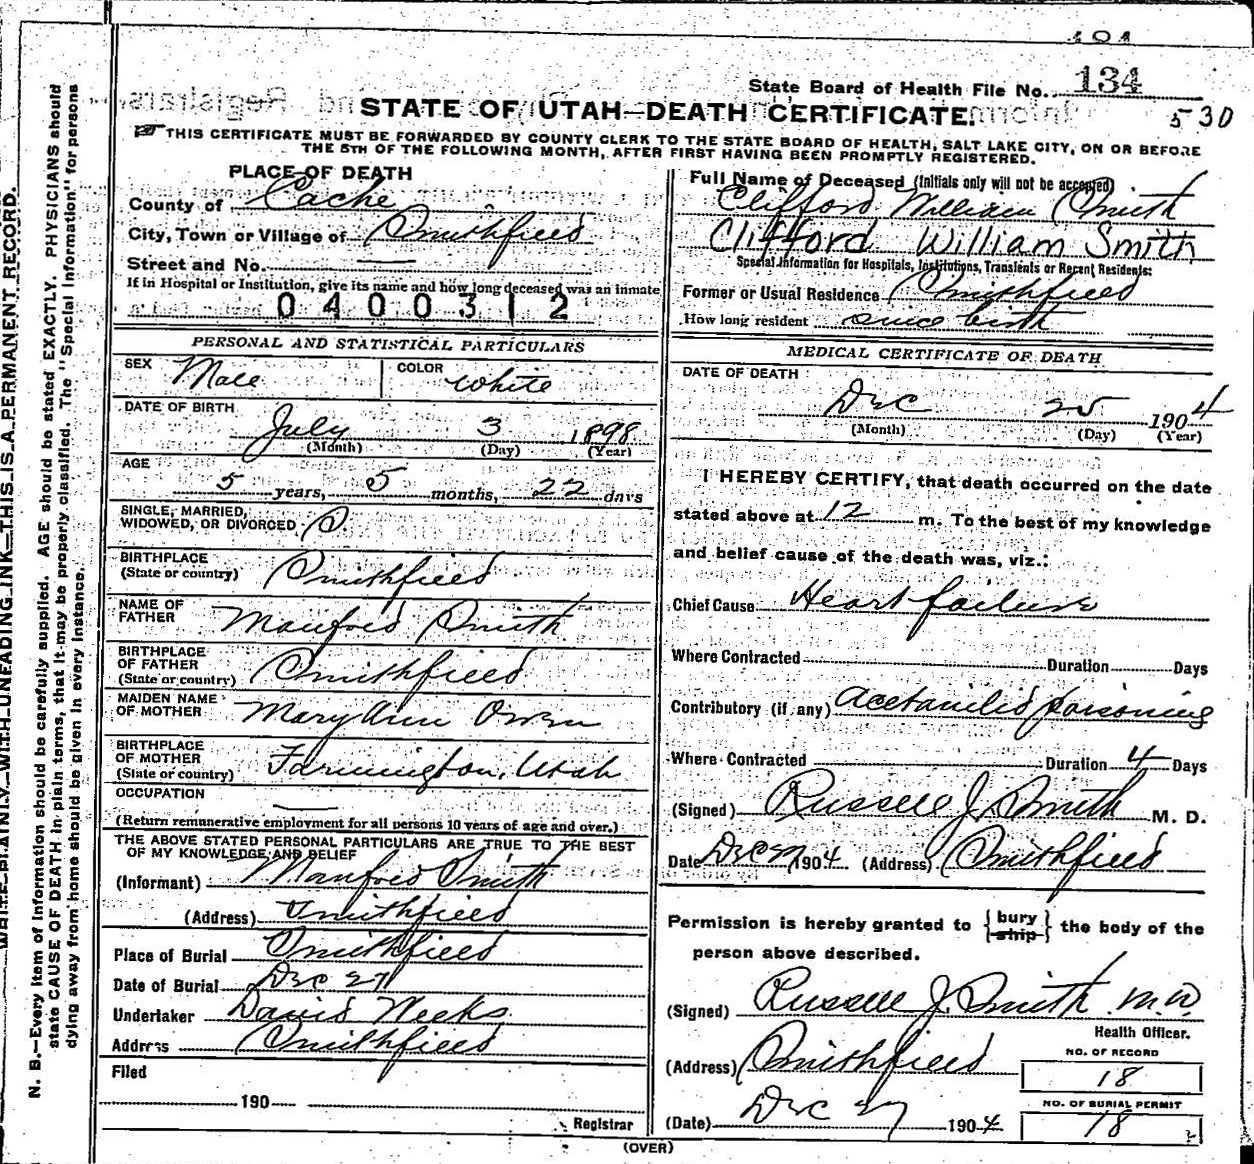 134
State Board of Health File No. 134
STATE OF UTAH—DEATH CERTIFICATE.
530
THIS CERTIFICATE MUST BE FORWARDED BY COUNTY CLERK TO THE STATE BOARD OF HEALTH, SALT LAKE CITY, ON OR BEFORE
THE 5TH OF THE FOLLOWING MONTH, AFTER FIRST HAVING BEEN PROMPTLY REGISTERED.
WRITE PLAINLY WITH UNFADING INK—THIS IS A PERMANENT RECORD.
N. B.—Every item of information should be carefully supplied. AGE should be stated EXACTLY. PHYSICIANS should
state CAUSE OF DEATH in plain terms, that it may be properly classified. The "Special Information" for persons
dying away from home should be given in every instance.
PLACE OF DEATH
County of Cache
City, Town or Village of Smithfield
Street and No. —
If in Hospital or Institution, give its name and how long deceased was an inmate
0400312
PERSONAL AND STATISTICAL PARTICULARS
SEX Male COLOR White
DATE OF BIRTH
July 3 1898
(Month) (Day) (Year)
AGE
5 years, 5 months, 22 days
SINGLE, MARRIED,
WIDOWED, OR DIVORCED S.
BIRTHPLACE
(State or country) Smithfield
NAME OF
FATHER Manfred Smith
BIRTHPLACE
OF FATHER
(State or country) Smithfield
MAIDEN NAME
OF MOTHER Mary Ann Owen
BIRTHPLACE
OF MOTHER
(State or country) Farmington, Utah
OCCUPATION —
(Return remunerative employment for all persons 10 years of age and over.)
THE ABOVE STATED PERSONAL PARTICULARS ARE TRUE TO THE BEST
OF MY KNOWLEDGE AND BELIEF
(Informant) Manfred Smith
(Address) Smithfield
Place of Burial Smithfield
Date of Burial Dec 27
Undertaker David Weeks
Address Smithfield
Filed
190
Registrar
Full Name of Deceased (Initials only will not be accepted)
Clifford William Smith
Clifford William Smith
Special Information for Hospitals, Institutions, Transients or Recent Residents:
Former or Usual Residence Smithfield
How long resident since birth
MEDICAL CERTIFICATE OF DEATH
DATE OF DEATH
Dec 25 1904
(Month) (Day) (Year)
I HEREBY CERTIFY, that death occurred on the date
stated above at 12 m. To the best of my knowledge
and belief cause of the death was, viz.:
Chief Cause Heart failure
Where Contracted Duration Days
Contributory (if any) Acetanilid poisoning
Where Contracted Duration 4 Days
(Signed) Russell J. Smith M. D.
Date Dec 27 1904 (Address) Smithfield
Permission is hereby granted to {bury ship} the body of the
person above described.
(Signed) Russell J. Smith M.D.
Health Officer.
(Address) Smithfield
NO. OF RECORD
18
(Date) Dec 27 1904
NO. OF BURIAL PERMIT
18
(OVER)